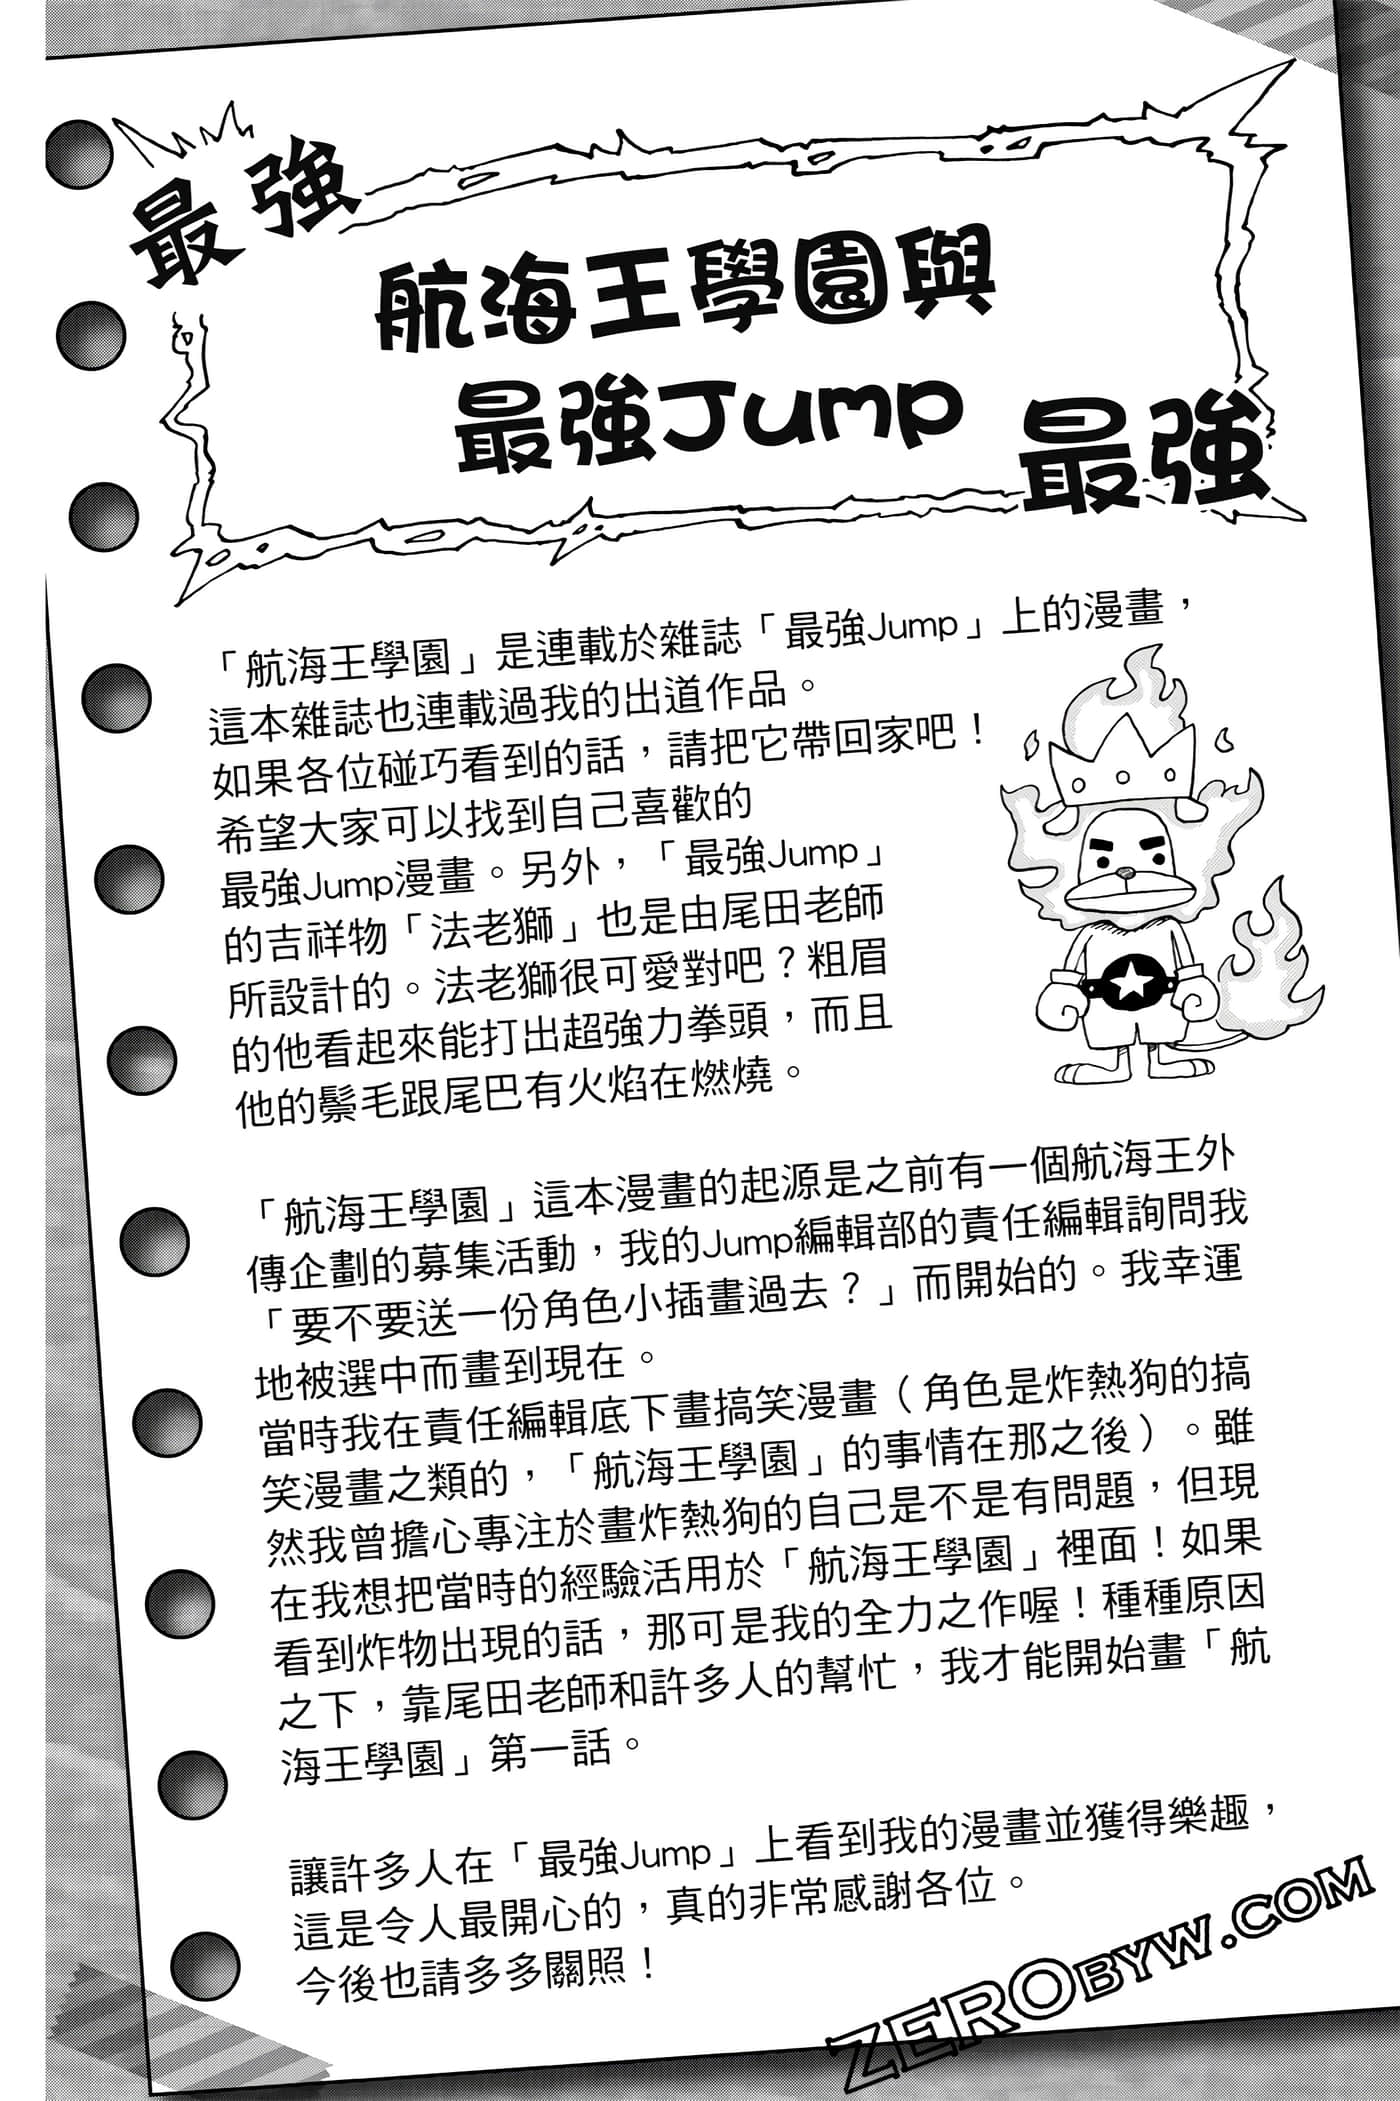 最強
航海王學園與
最強Jump
最強
「航海王學園」是連載於雜誌「最強Jump」上的漫畫，
這本雜誌也連載過我的出道作品。
如果各位碰巧看到的話，請把它帶回家吧！
希望大家可以找到自己喜歡的
最強Jump漫畫。另外，「最強Jump」
的吉祥物「法老獅」也是由尾田老師
所設計的。法老獅很可愛對吧？粗眉
的他看起來能打出超強力拳頭，而且
他的鬃毛跟尾巴有火焰在燃燒。
「航海王學園」這本漫畫的起源是之前有一個航海王外
傳企劃的募集活動，我的Jump編輯部的責任編輯詢問我
「要不要送一份角色小插畫過去？」而開始的。我幸運
地被選中而畫到現在。
當時我在責任編輯底下畫搞笑漫畫（角色是炸熱狗的搞
笑漫畫之類的，「航海王學園」的事情在那之後）。雖
然我曾擔心專注於畫炸熱狗的自己是不是有問題，但現
在我想把當時的經驗活用於「航海王學園」裡面！如果
看到炸物出現的話，那可是我的全力之作喔！種種原因
之下，靠尾田老師和許多人的幫忙，我才能開始畫「航
海王學園」第一話。
讓許多人在「最強Jump」上看到我的漫畫並獲得樂趣，
這是令人最開心的，真的非常感謝各位。
今後也請多多關照！
ZEROBYW.COM